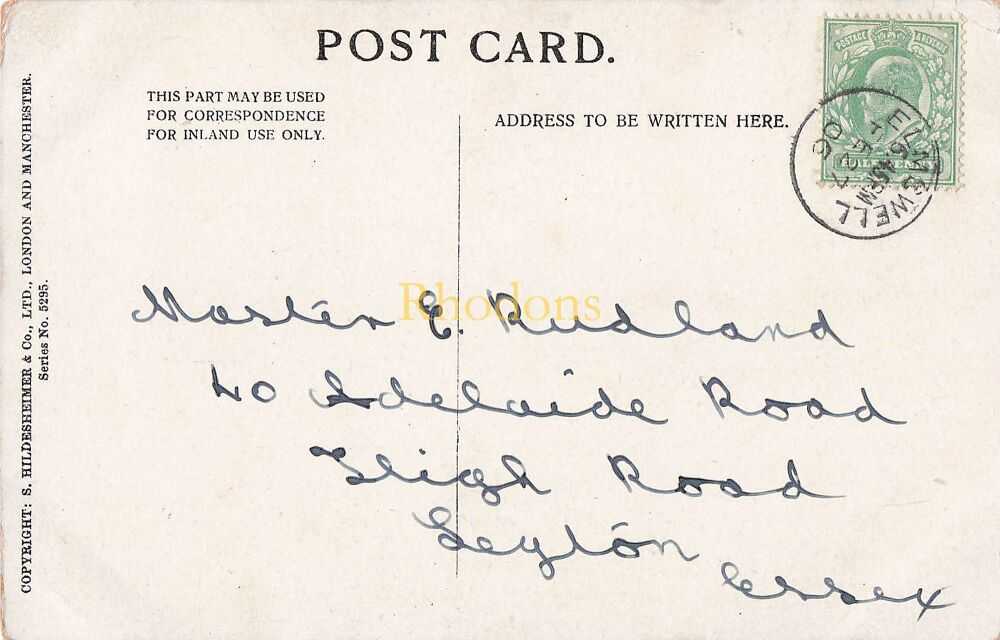 POST CARD.
THIS PART MAY BE USED
FOR CORRESPONDENCE
FOR INLAND USE ONLY.
ADDRESS TO BE WRITTEN HERE.
POSTAGE & REVENUE
ELMSWELL
FE 27
06
Master E. Rudland
40 Adelaide Road
Leigh Road
Leyton
Essex
Rhodons
COPYRIGHT: S. HILDESHEIMER & Co., LTD., LONDON AND MANCHESTER.
Series No. 5295.